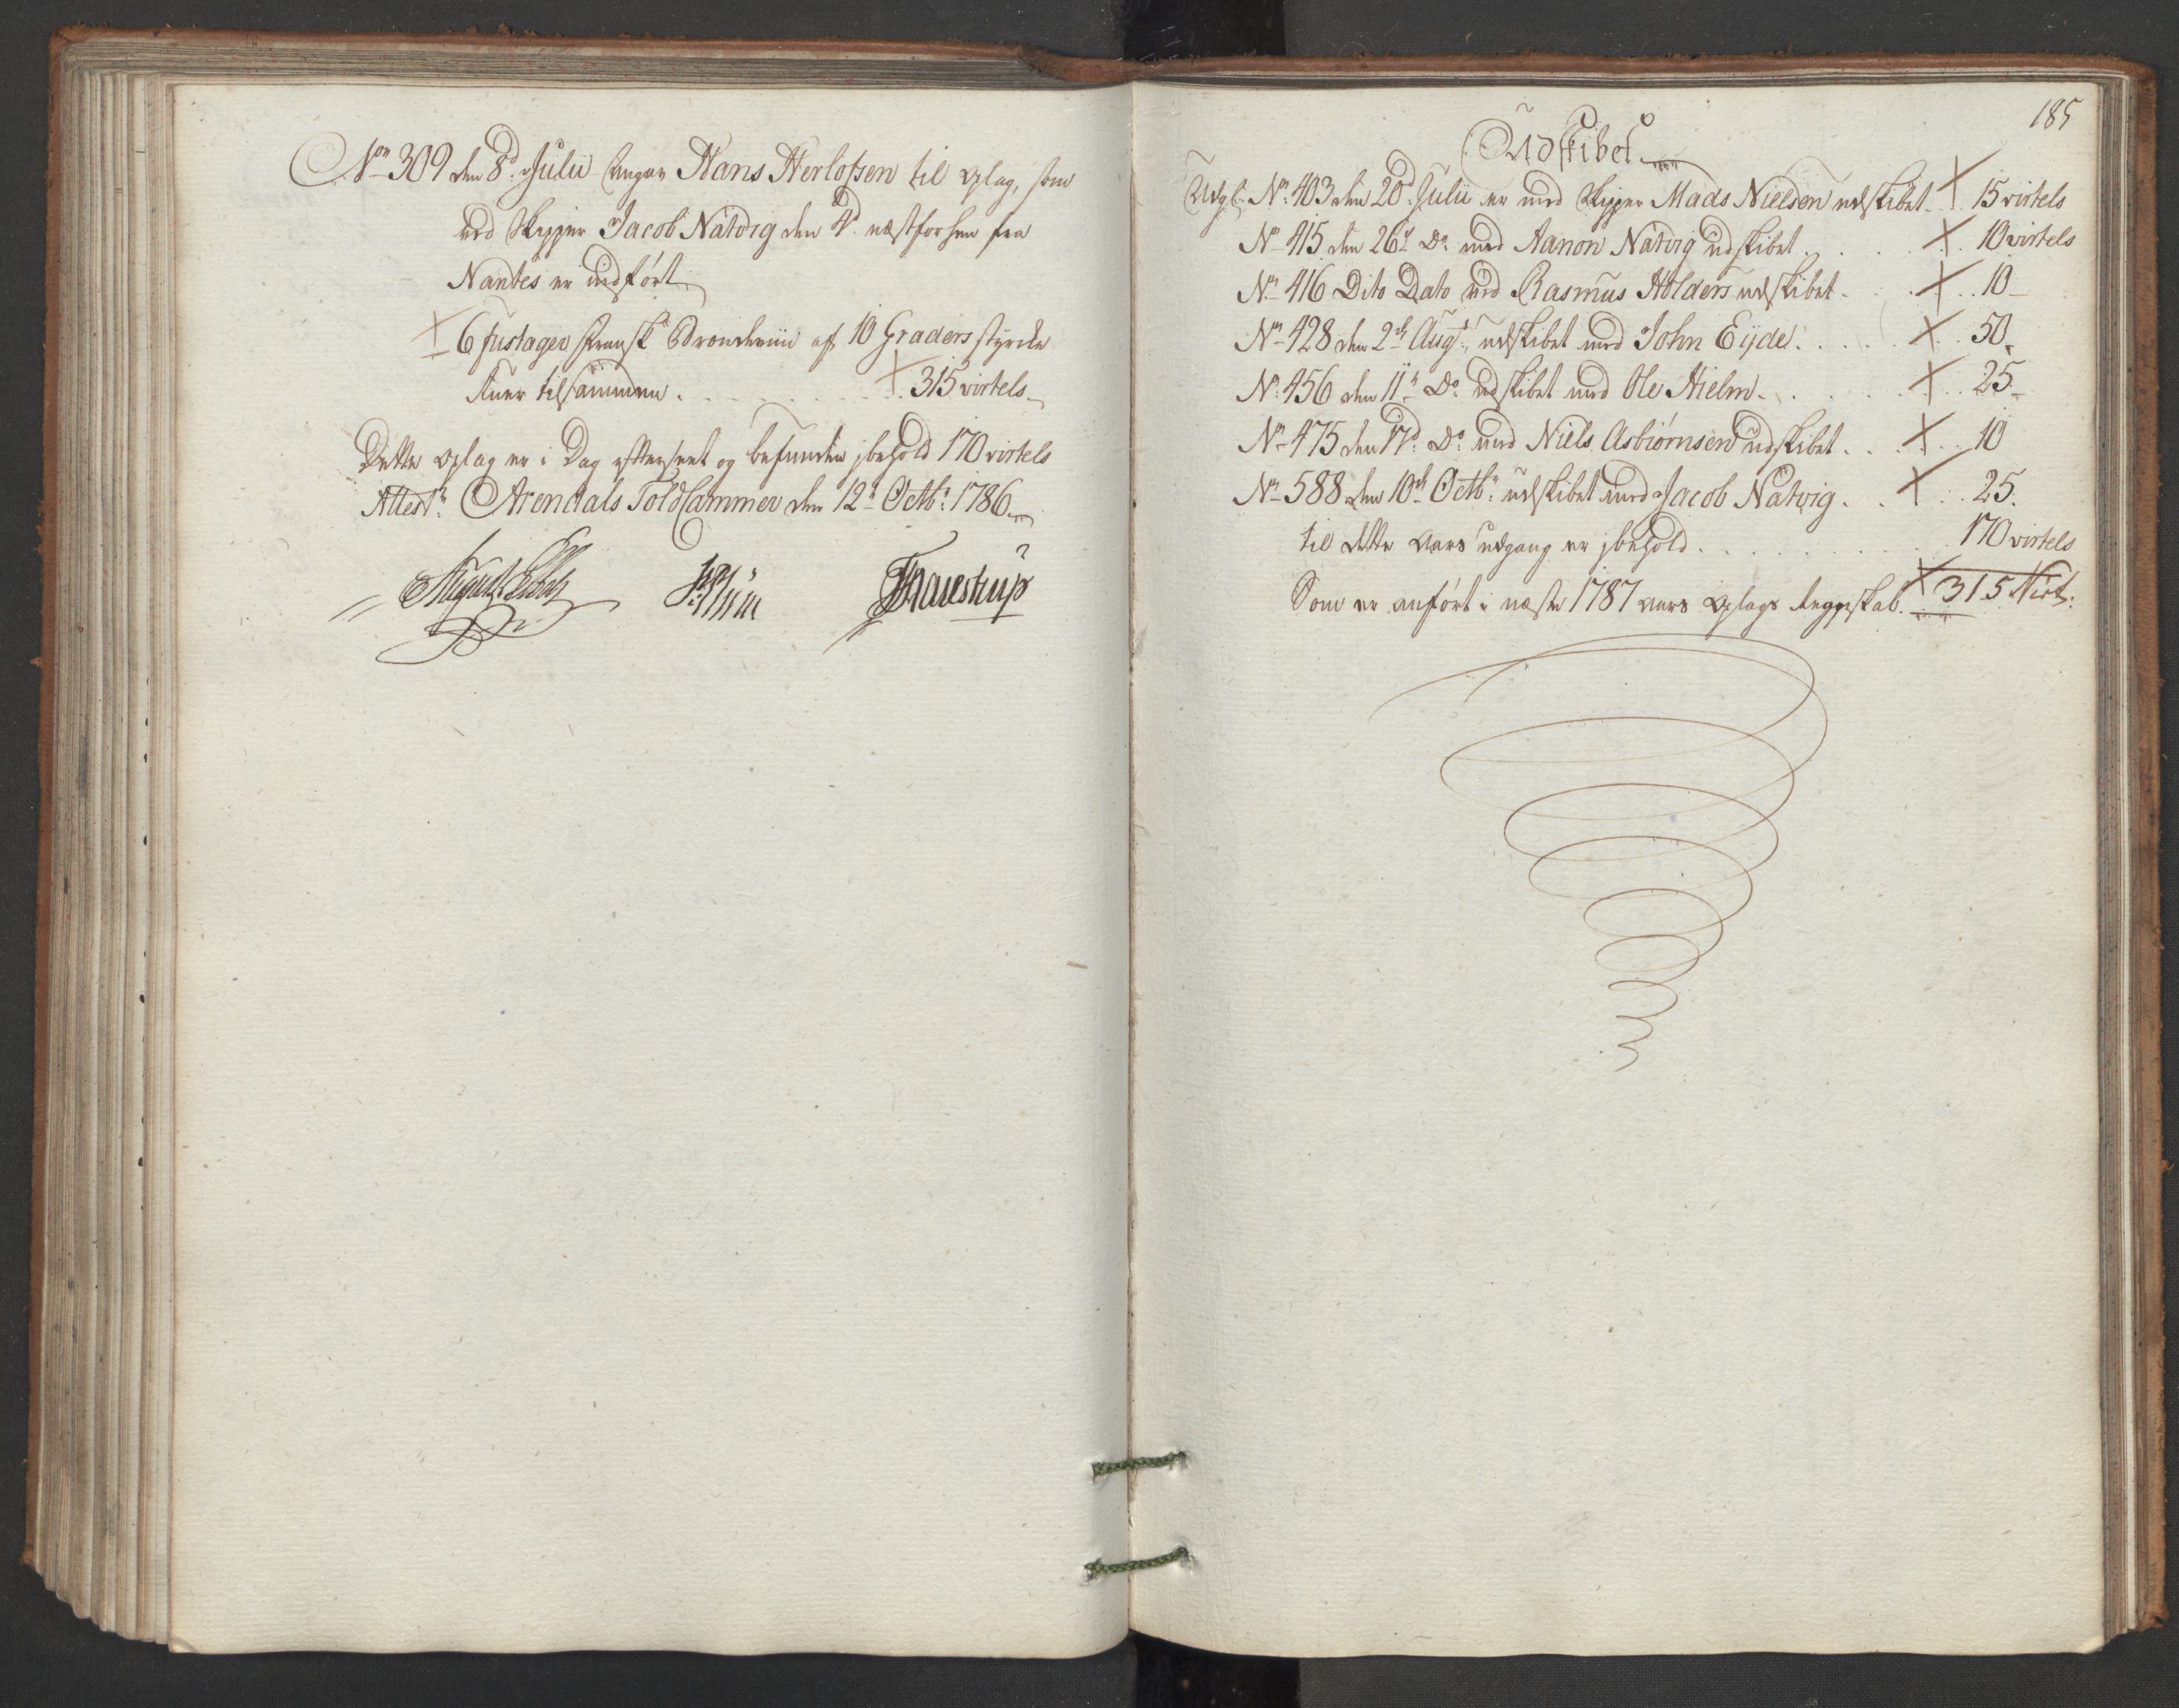 No 309 den 8de Julii Angav Hans Herlofsen til oplag, som
ved Skipper Jacob Natvig den 4de næstforhen fra
Nantes er indført
6 fustager fransk Brændeviin af 10 Graders styrcke
tilsammen . . . 315 virtels
Dette oplag er i Dag efterseet og befunden i behold 170 virtels
Attest: Arendals Told Cammer den 12te Octbr: 1786
185
Udskibet
Udgl. No 403 den 20de Julii er med Skipper Mads Nielsen udskibet 15 virtels
No 415 den 26de Do med Aanon Natvig udskibet . . . 10 virtels
No 416 Dito Dato med Rasmus Holders udskibet . . . 10
No 428 den 2de Augt: udskibet med John Eyde . . . 50
No 456 den 11te Do udskibet med Ole Hielm . . . 25
No 475 den 17de Do med Niels Asbiørnsen udskibet . . . 10
No 588 den 10de Octb: udskibet med Jacob Natvig . . . 25
til dette Aars udgang er i behold . . . 170 virtels
Som er anført i næste 1787 Aars oplags Regnskab. 315 Virt: